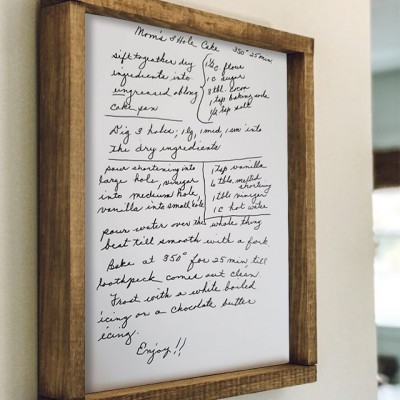 Mom's 3 Hole Cake 350° 25 min
sift together dry
ingredients into
ungreased oblong
cake pan
1½ c flour
1 c sugar
3 tbl. cocoa
1 tsp baking soda
½ tsp salt
Dig 3 holes; 1 lg, 1 med, 1 sm into
the dry ingredients
pour shortening into
large hole, vinegar
into medium hole,
vanilla into small hole
1 tsp vanilla
6 tbl. melted
shortening
1 tbl. vinegar
1 c hot water
pour water over the whole thing
beat till smooth with a fork
Bake at 350° for 25 min, till
toothpick comes out clean.
Frost with a white boiled
icing or a chocolate butter
icing.
Enjoy!!